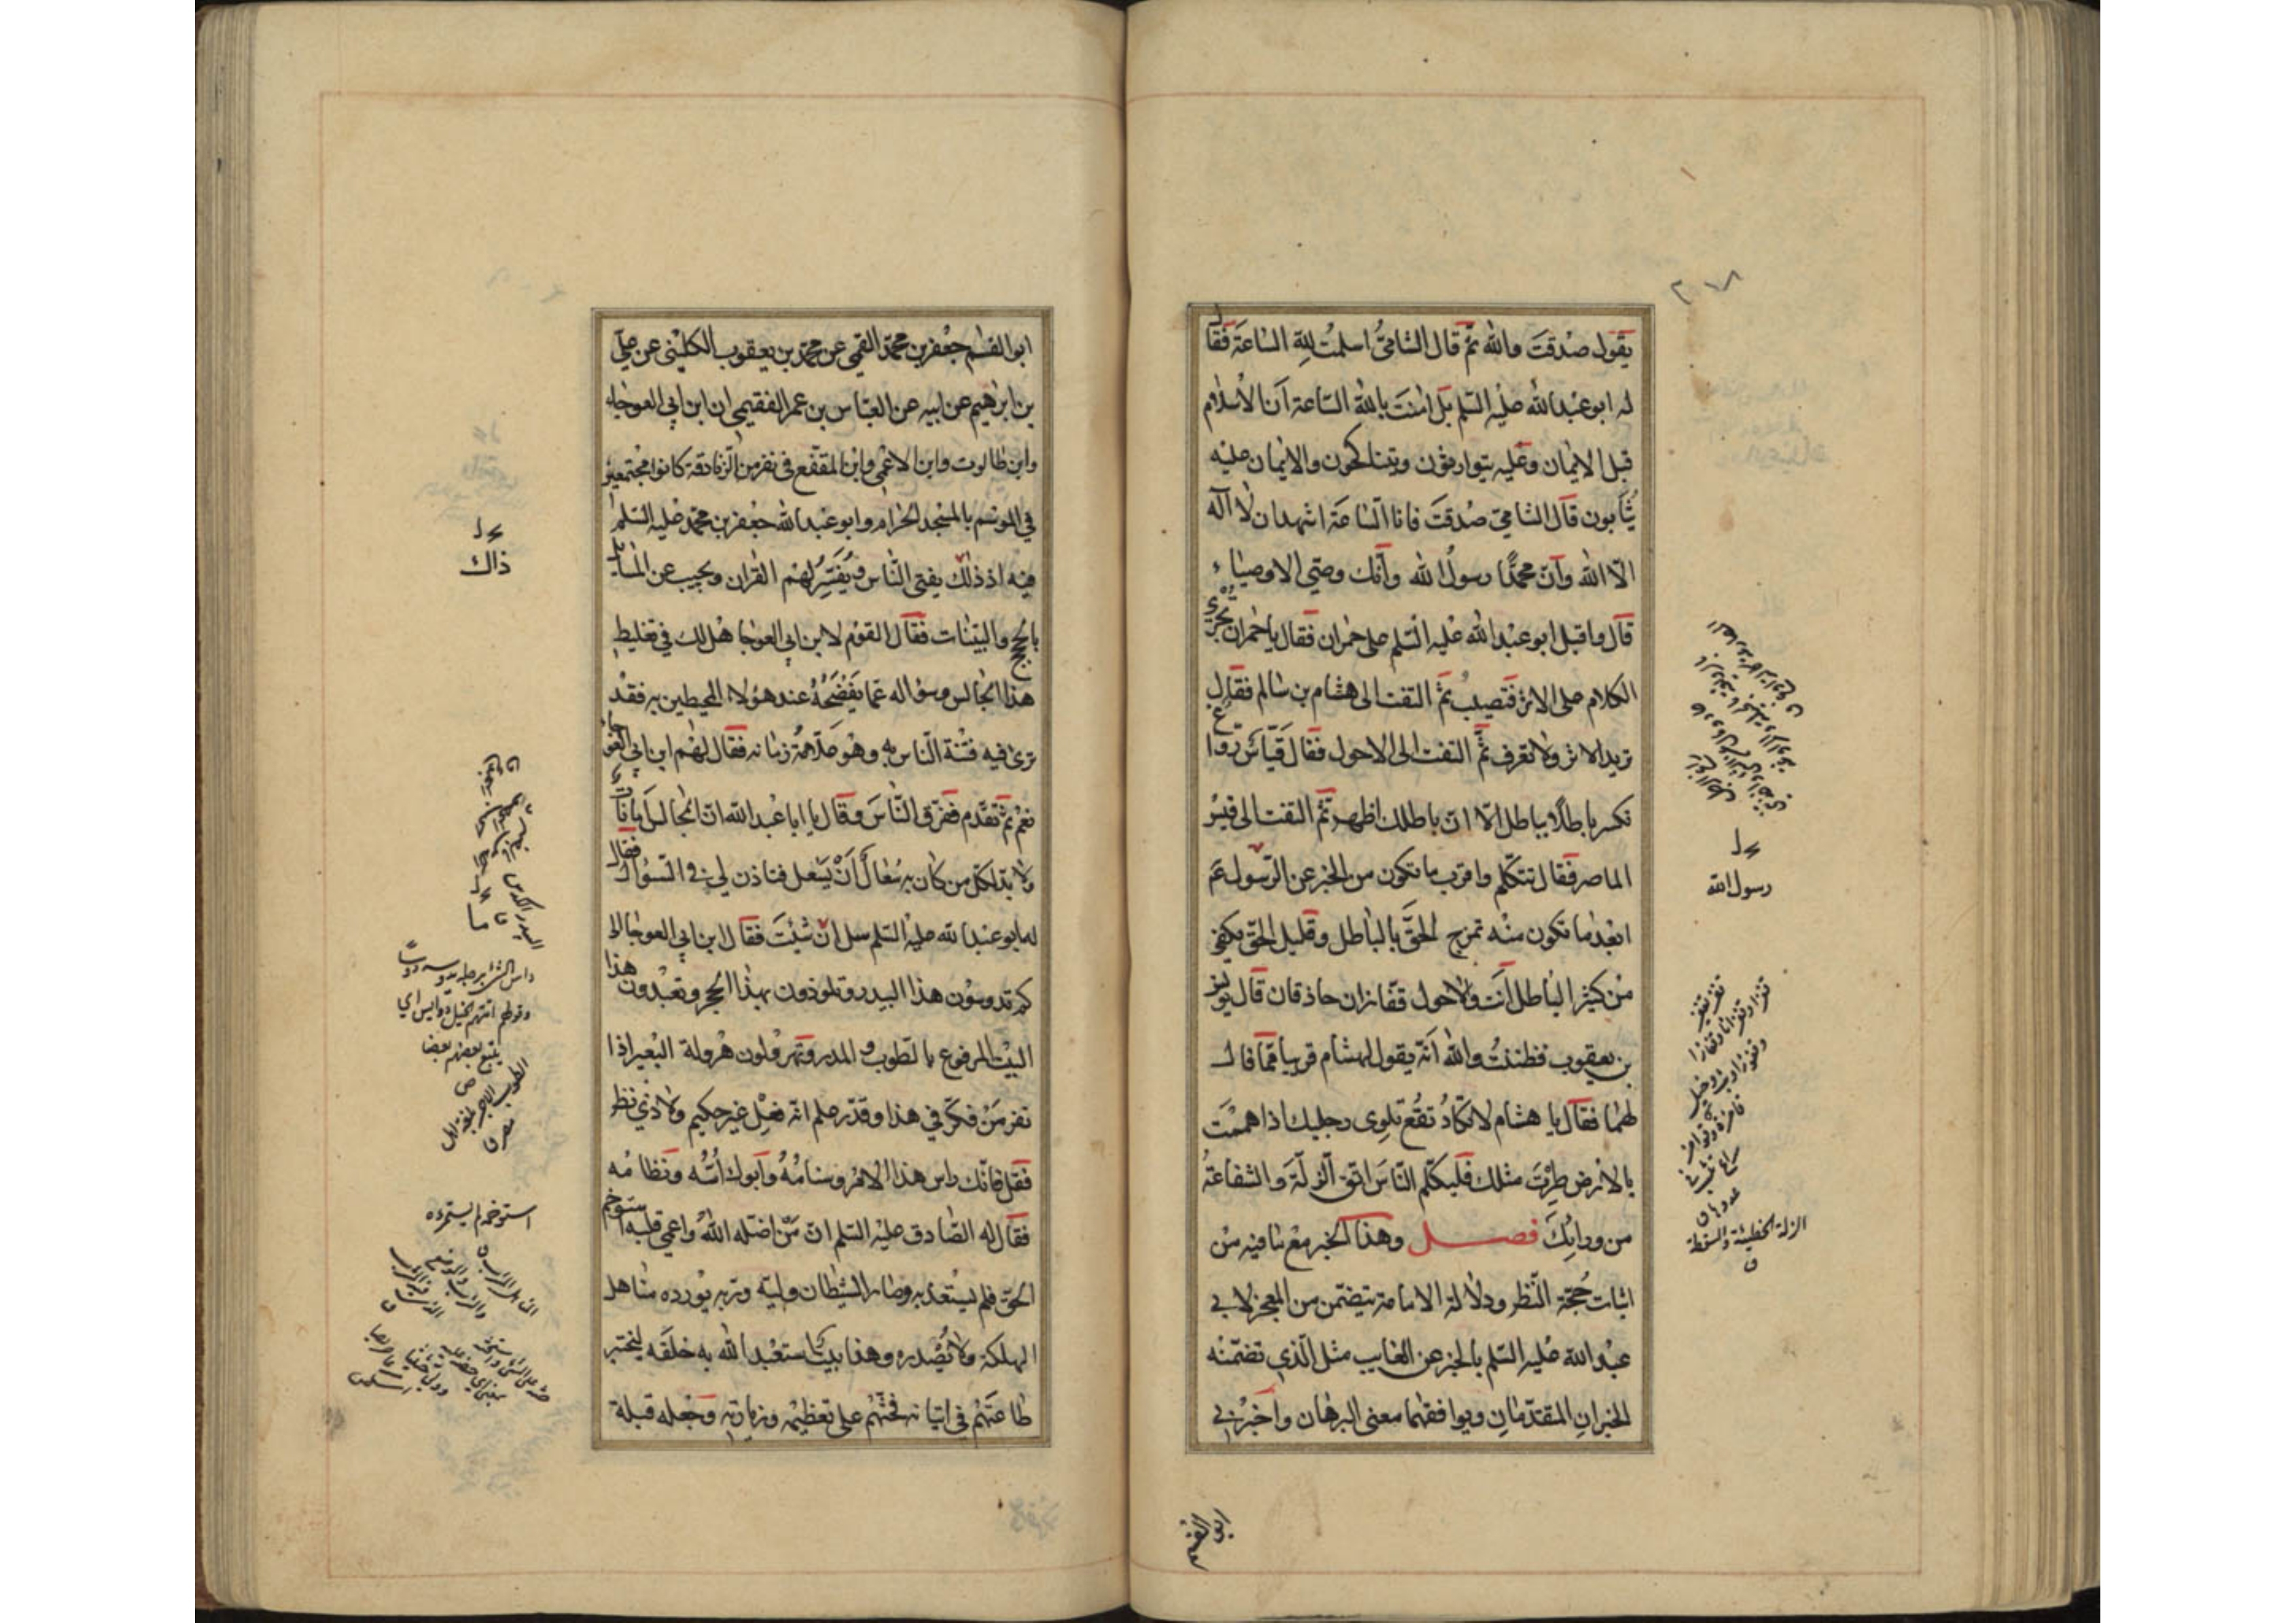 ٢٠٨
يقول صدقت والله ثم قال الشامي اسلمت لله الساعة فقال
له ابو عبد الله عليه السلم بل امنت بالله الساعة ان الاسلام
قبل الايمان وعليه يتوارثون ويتناكحون والايمان عليه
يثابون قال الشامي صدقت فانا الساعة اشهد ان لا اله
الا الله وان محمدا رسول الله وانك وصي الاوصياء
قال واقبل ابو عبد الله عليه السلم على حمران فقال يا حمران تجري
الكلام على الاثر فتصيب ثم التفت الى هشام بن سالم فقال
تريد الاثر ولا تعرف ثم التفت الى الاحول فقال قياس رواغ
تكسر باطلا بباطل الا ان باطلك اظهر ثم التفت الى قيس
الماصر فقال تتكلم واقرب ما تكون من الخبر عن الرسول عم
ابعد ما تكون منه تمزج الحق بالباطل وقليل الحق يكفي
من كثير الباطل انت والاحول قفازان حاذقان قال يونس
بن يعقوب فظننت والله انه يقول لهشام قريبا مما قال
لهما فقال يا هشام لا تكاد تقع تلوى رجليك اذا هممت
بالارض طرت مثلك فليكلم الناس اتق الزلة والشفاعة
من ورائك فصل وهذا الخبر مع ما فيه من
اثبات حجة النظر ودلالة الامامة يتضمن من المعجز لابي
عبد الله عليه السلم بالخبر عن الغايب مثل الذي تضمنه
الخبران المقدمان ويوافقهما معنى البرهان واخبرني
رسول الله
الزلة الخطيئة والسقطة
ق
ابو القسم جعفر بن محمد القمي عن محمد بن يعقوب الكليني عن علي
بن ابرهيم عن ابيه عن العباس بن عمر الفقيمي ان ابن ابي العوجاء
وابن طالوت وابن الاعمى وابن المقفع في نفر من الزنادقة كانوا مجتمعين
في الموسم بالمسجد الحرام وابو عبد الله جعفر بن محمد عليه السلم
فيه اذ ذلك يفتي الناس ويفسر لهم القران ويجيب عن المسايل
بالحجج والبينات فقال القوم لابن ابي العوجا هل لك في تغليط
هذا الجالس وسؤاله عما يفضحه عند هؤلاء المحيطين به فقد
ترى فيه فتنة الناس به وهو علامة زمانه فقال لهم ابن ابي العوجاء
نعم ثم تقدم ففرق الناس وقال يا ابا عبد الله ان المجالس امانات
ولا بد لكل من كان به سعال ان يسعل فتاذن لي في السؤال فقال
له ابو عبد الله عليه السلم سل ان شئت فقال ابن ابي العوجا الى
كم تدوسون هذا البيدر وتلوذون بهذا الحجر وتعبدون هذا
البيت المرفوع بالطوب والمدر وتهرولون هرولة البعير اذا
نفر من فكر في هذا وقدر علم انه فعل غير حكيم ولا ذي نظر
فقل فانك راس هذا الامر وسنامه وابوك اسه ونظامه
فقال له الصادق عليه السلم ان من اضله الله واعمى قلبه استوخم
الحق فلم يستعذبه وصار الشيطان وليه وربه يورده مناهل
الهلكة ولا يصدره وهذا بيت استعبد الله به خلقه ليختبر
طاعتهم في اتيانه فحثهم على تعظيمه وزيارته وجعله قبلة
ذاك
ما
استوخمه لم يستمرءه